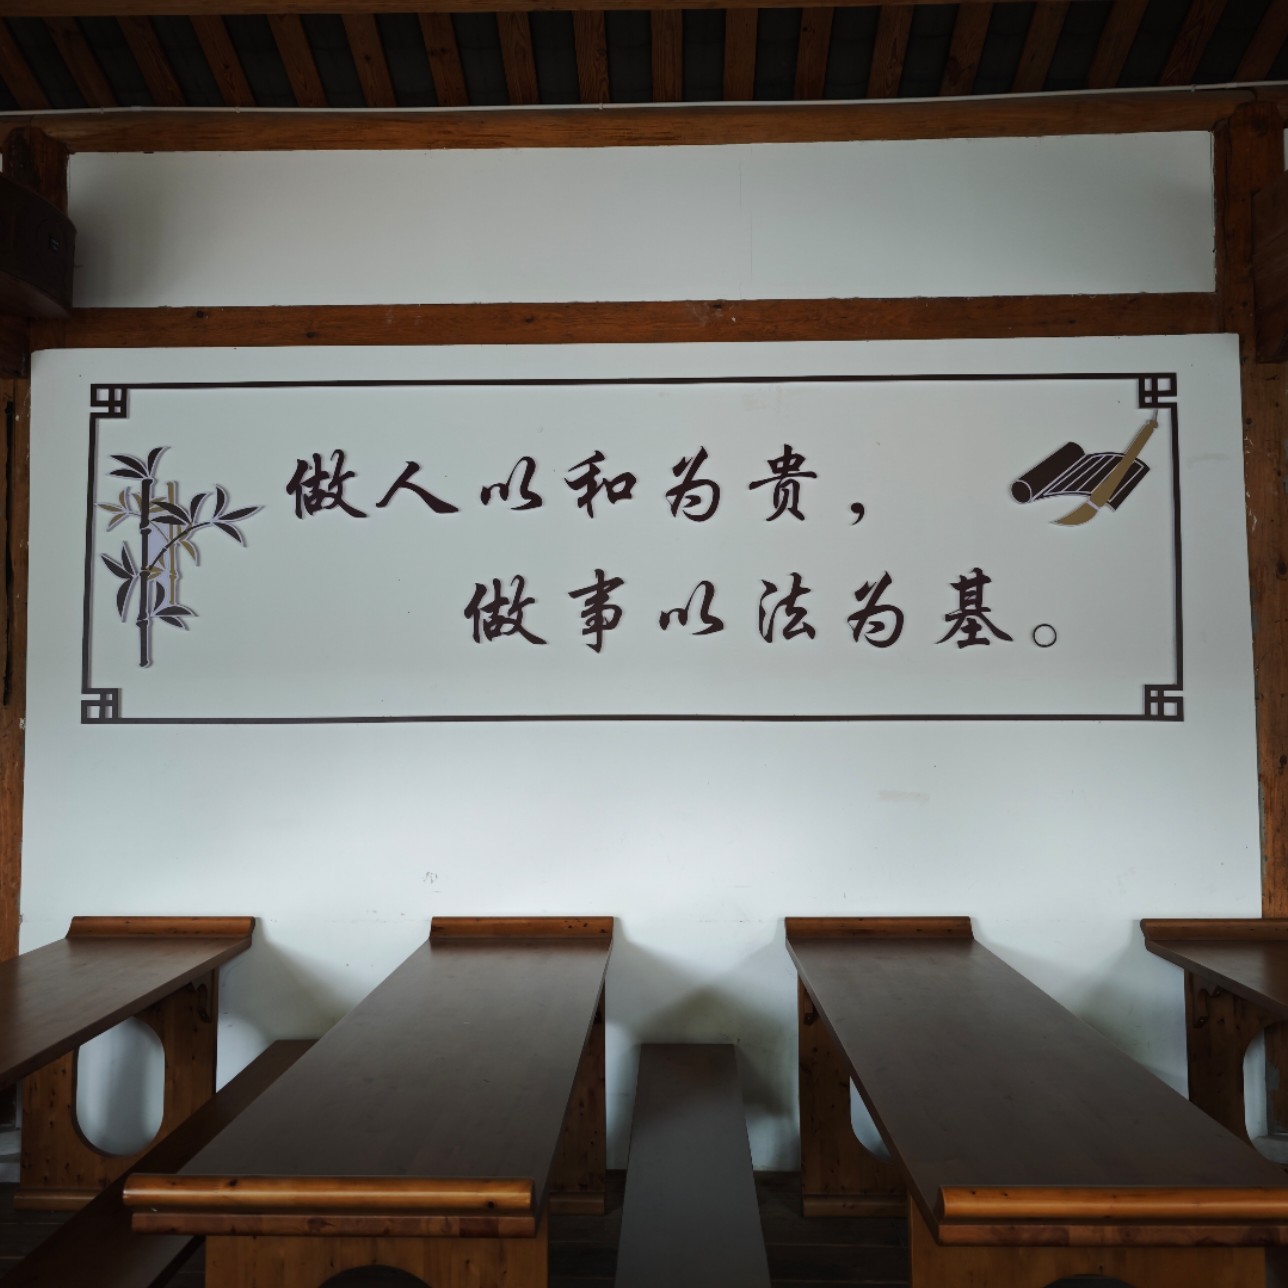 做人以和为贵，
做事以法为基。